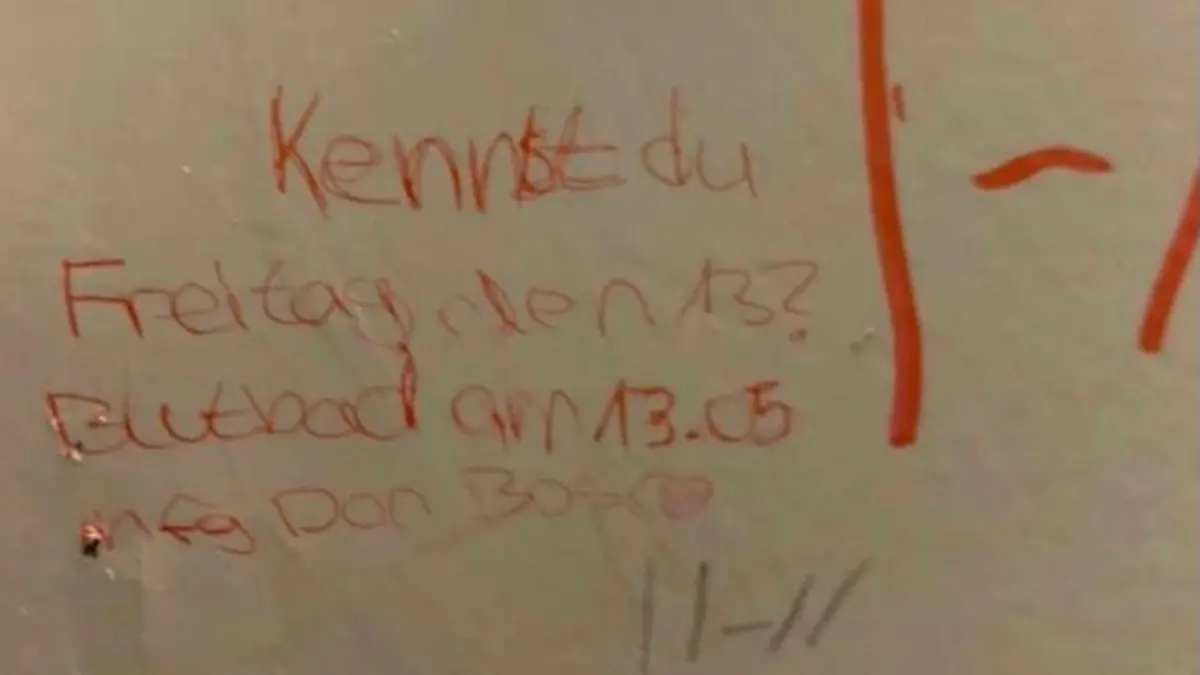 Kennst du
Freitag den 13?
Blutbad am 13.05
mfg Don Bosco